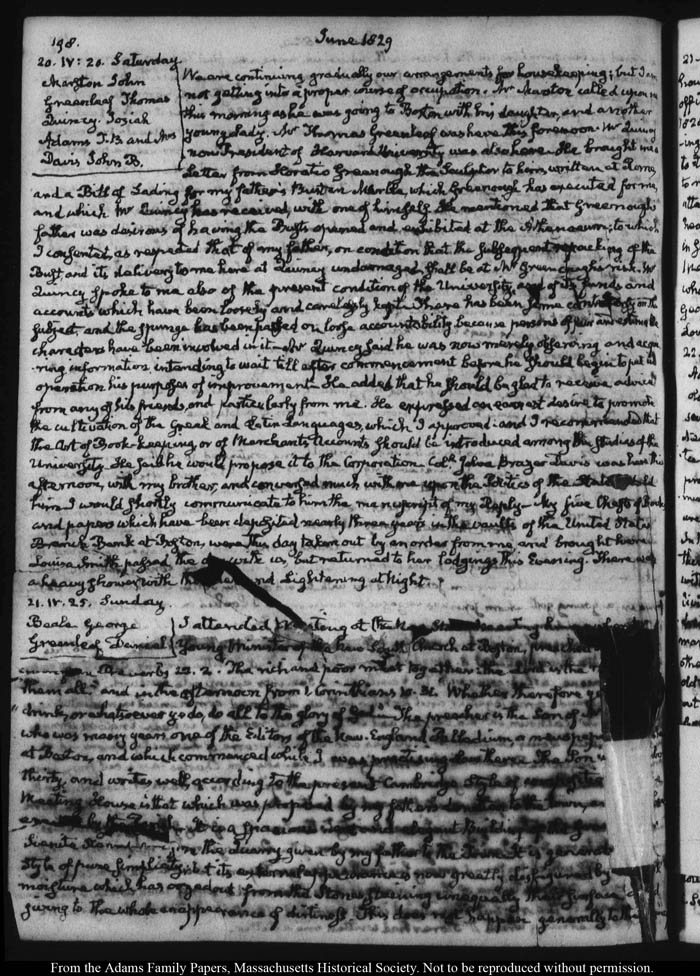 198.
June 1829
20. IV: 20. Saturday.
Marston John
Greenleaf Thomas
Quincy. Josiah
Adams T. B. and Mrs
Davis John B.
We are continuing gradually our arrangements for housekeeping; but I am
not getting into a proper course of occupation. Mr Marston called upon me
this morning as he was going to Boston with his daughter, and another
young lady. Mr Thomas Greenleaf was here this forenoon. Mr Quincy
now President of Harvard University was also here. He brought me a
Letter from Horatio Greenough the Sculptor to him, written at Rome,
and a Bill of Lading for my father's Bust in Marble, which Greenough has executed for me,
and which Mr Quincy has received, with one of himself. He mentioned that Greenough's
father was desirous of having the Busts opened and exhibited at the Athenaeum; to which
I consented, as respected that of my father, on condition that the subsequent repacking of the
Bust and its delivery to me here at Quincy undamaged, shall be at Mr Greenough's risk. Mr
Quincy spoke to me also of the present condition of the University, and of its funds and
accounts which have been loosely and carelessly kept. There has been some controversy on the
subject and the spunge has been passed on loose accountability because persons of fair and estimable
characters have been involved in it. Mr Quincy said he was now merely observing and acqui-
ring information, intending to wait till after commencement before he should begin to put in
operation his purposes of improvement. He added that he should be glad to receive advice
from any of his friends, and particularly from me. He expressed an earnest desire to promote
the cultivation of the Greek and Latin Languages, which I approved: and I recommended that
the Art of Book-keeping, or of Merchants Accounts should be introduced among the studies of the
University. He said he would propose it to the Corporation. Coll. John Brazer Davis was here this
afternoon, with my brother, and conversed much with me upon the Politics of the State. I told
him I would shortly communicate to him the manuscript of my Reply. My five Chests of Books
and papers which have been deposited nearly three years in the vaults of the United States
Branch Bank at Boston, were this day taken out by an order from me and brought here.
Louisa Smith passed the day with us, but returned to her lodgings this Evening. There was
a heavy shower with thunder and Lightening at Night.
21. IV. 25. Sunday.
Beale George
Greenleaf Daniel
I attended Meeting at the New Stone Meeting house
Young Minister of the new South Church at Boston, preached
Proverbs 22. 2. The rich and poor meet together: the Lord is the
them all." and in the afternoon from 1 Corinthians 10. 31. Whether therefore ye
drink, or whatsoever ye do, do all to the glory of God." The preacher is the Son of
who was many years one of the Editors of the New-England Palladium, a newspaper
at Boston, and which commenced while I was practising law there. The Son
thirty, and writes well, according to the present Cambridge Style of
Meeting House is that which was proposed by my father's donation to the town,
It is a spacious and elegant Building of the
the quarry given by my father to the Town. It is
style of pure simplicity; but its external appearance is now greatly disfigured by
moisture which has oozed out from the Stones staining unequally their surface and
giving to the whole an appearance of dirtiness. This does not happen generally to the
From the Adams Family Papers, Massachusetts Historical Society. Not to be reproduced without permission.